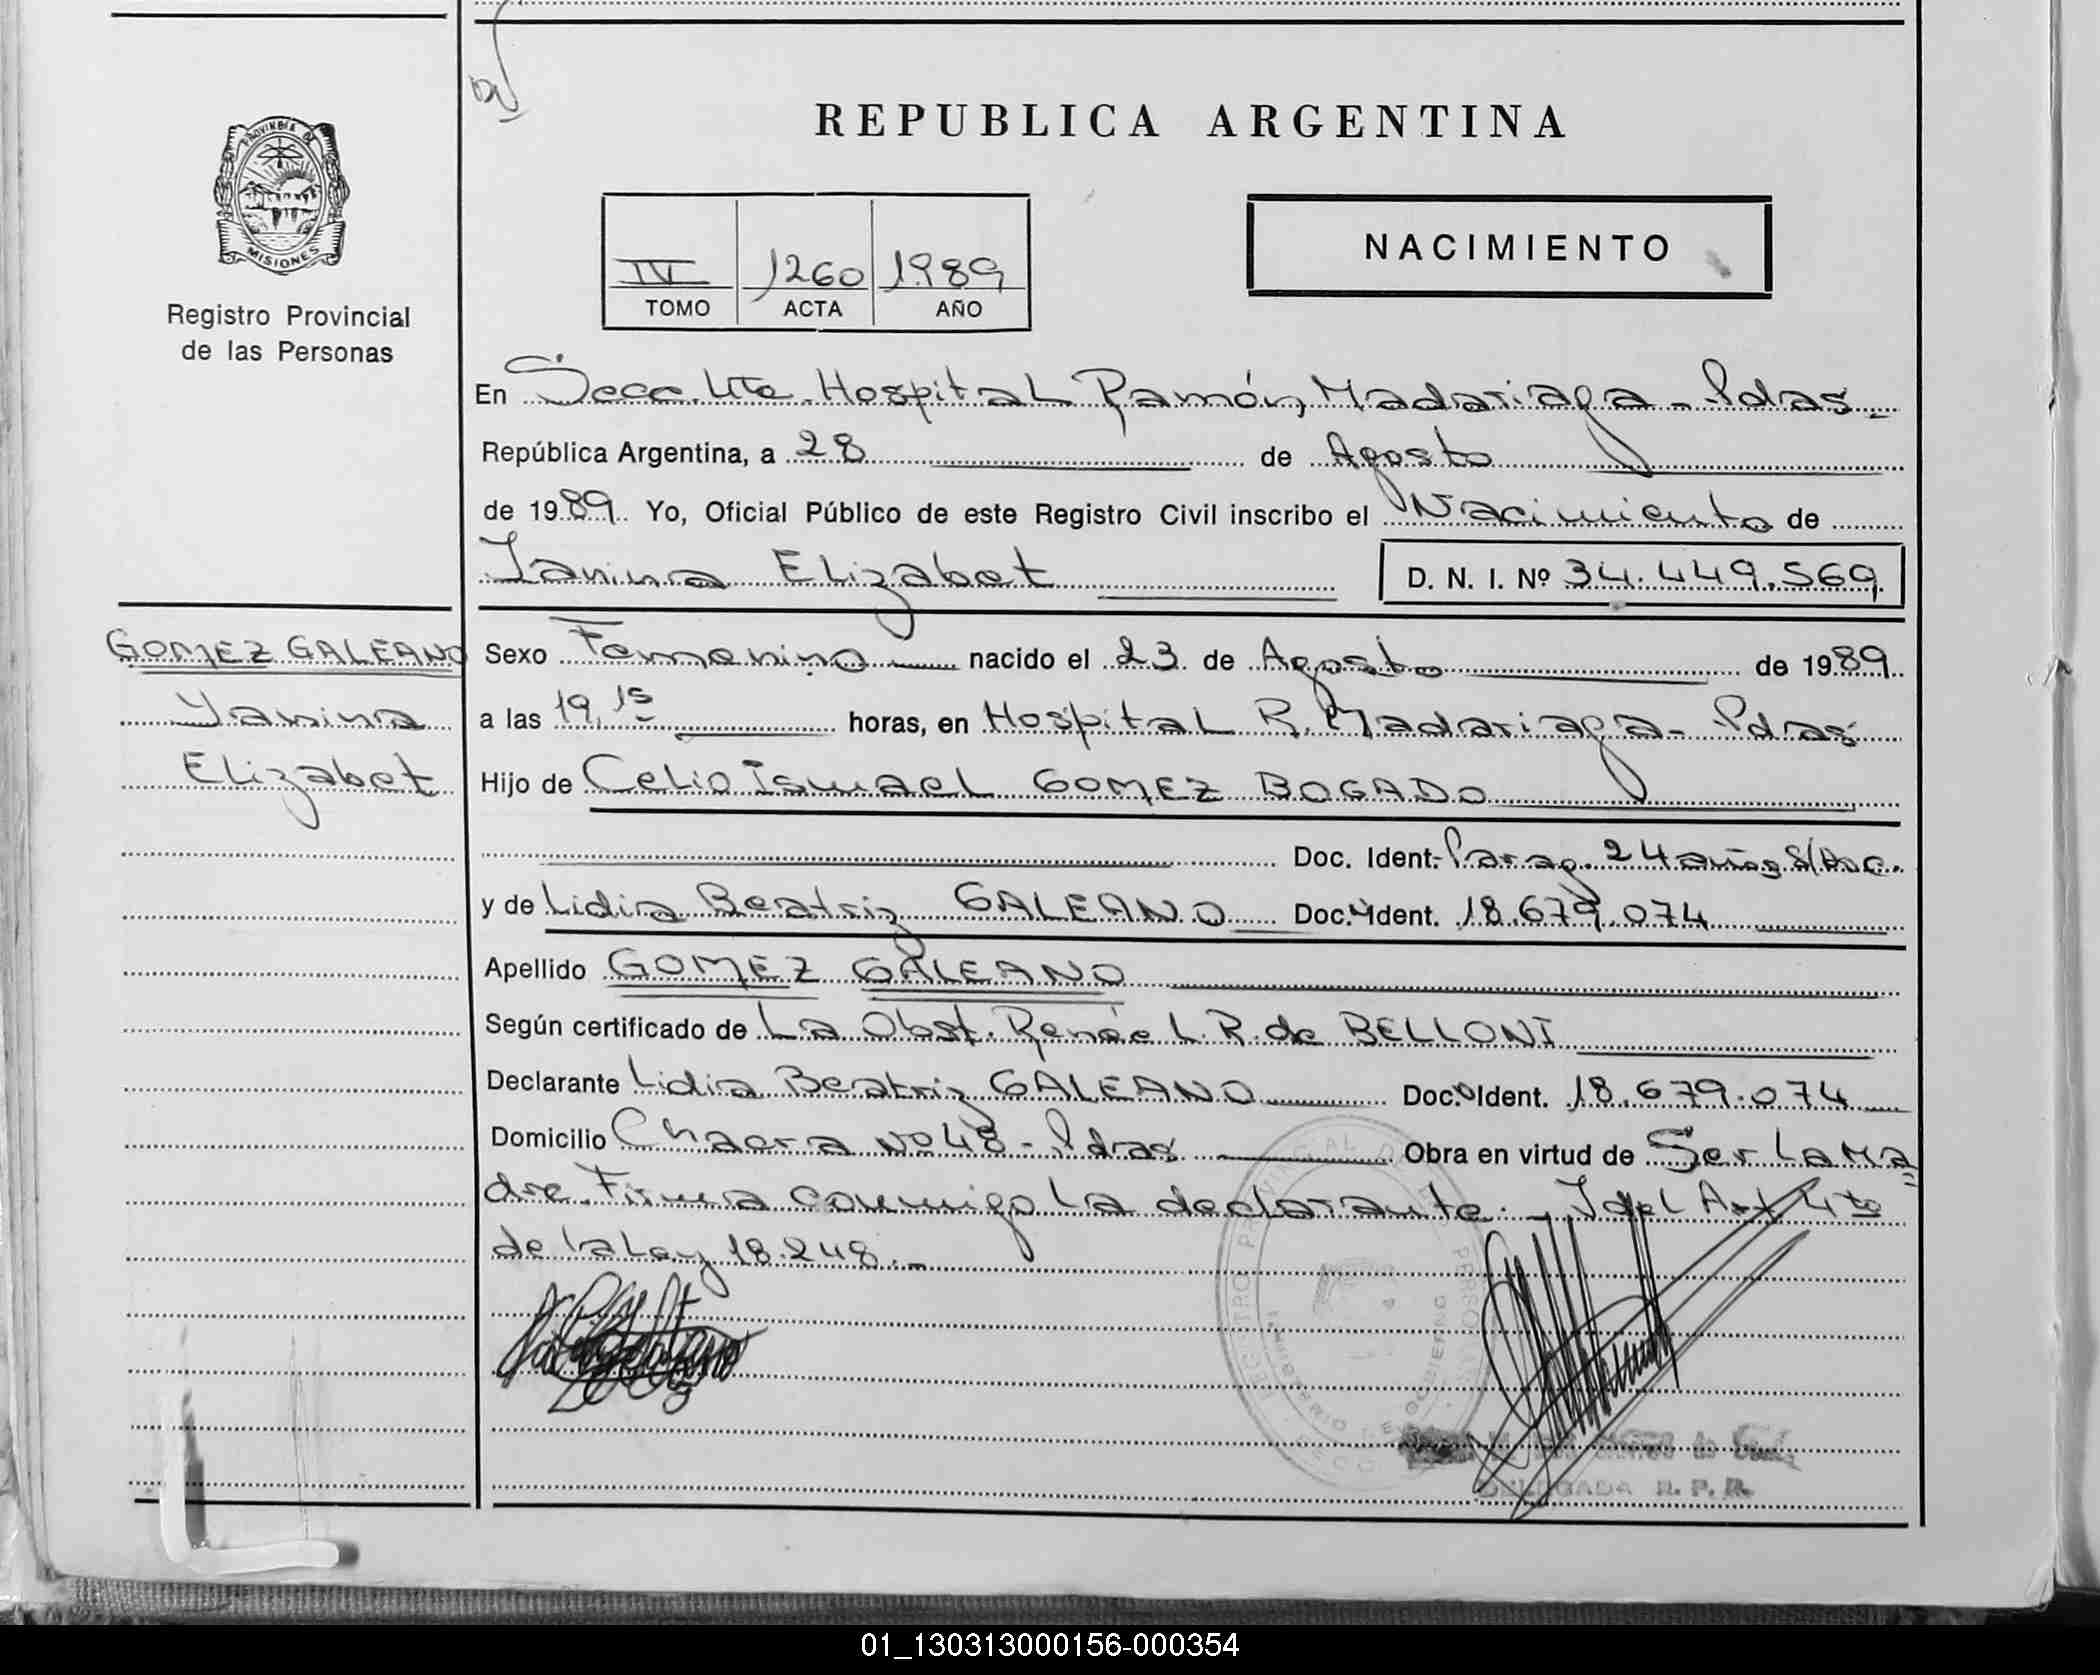 REPUBLICA ARGENTINA
PROVINCIA DE
MISIONES
Registro Provincial
de las Personas
NACIMIENTO
IV 1260 1989
TOMO ACTA AÑO
En Secc. Hospital Ramón Madariaga - Pdas -
República Argentina, a 28 de Agosto
de 1989. Yo, Oficial Público de este Registro Civil inscribo el Nacimiento de
Yanina Elizabet
D. N. I. Nº 34.449.569
GOMEZ GALEANO
Yanina
Elizabet
Sexo Femenino nacido el 23 de Agosto de 1989
a las 19,15 horas, en Hospital R. Madariaga - Pdas
Hijo de Celio Ismael GOMEZ BOGADO
Doc. Ident. Parag. 24 años S/Doc.
y de Lidia Beatriz GALEANO Doc. Ident. 18.679.074
Apellido GOMEZ GALEANO
Según certificado de La Obst. Renée L. R. de BELLONI
Declarante Lidia Beatriz GALEANO Doc. Ident. 18.679.074
Domicilio Chacra Nº 48 - Pdas Obra en virtud de Ser La Ma
dre. Firma conmigo la declarante. - Y del Art 4to
de la Ley 18.248. -
DELEGADA R. P. P.
01_130313000156-000354